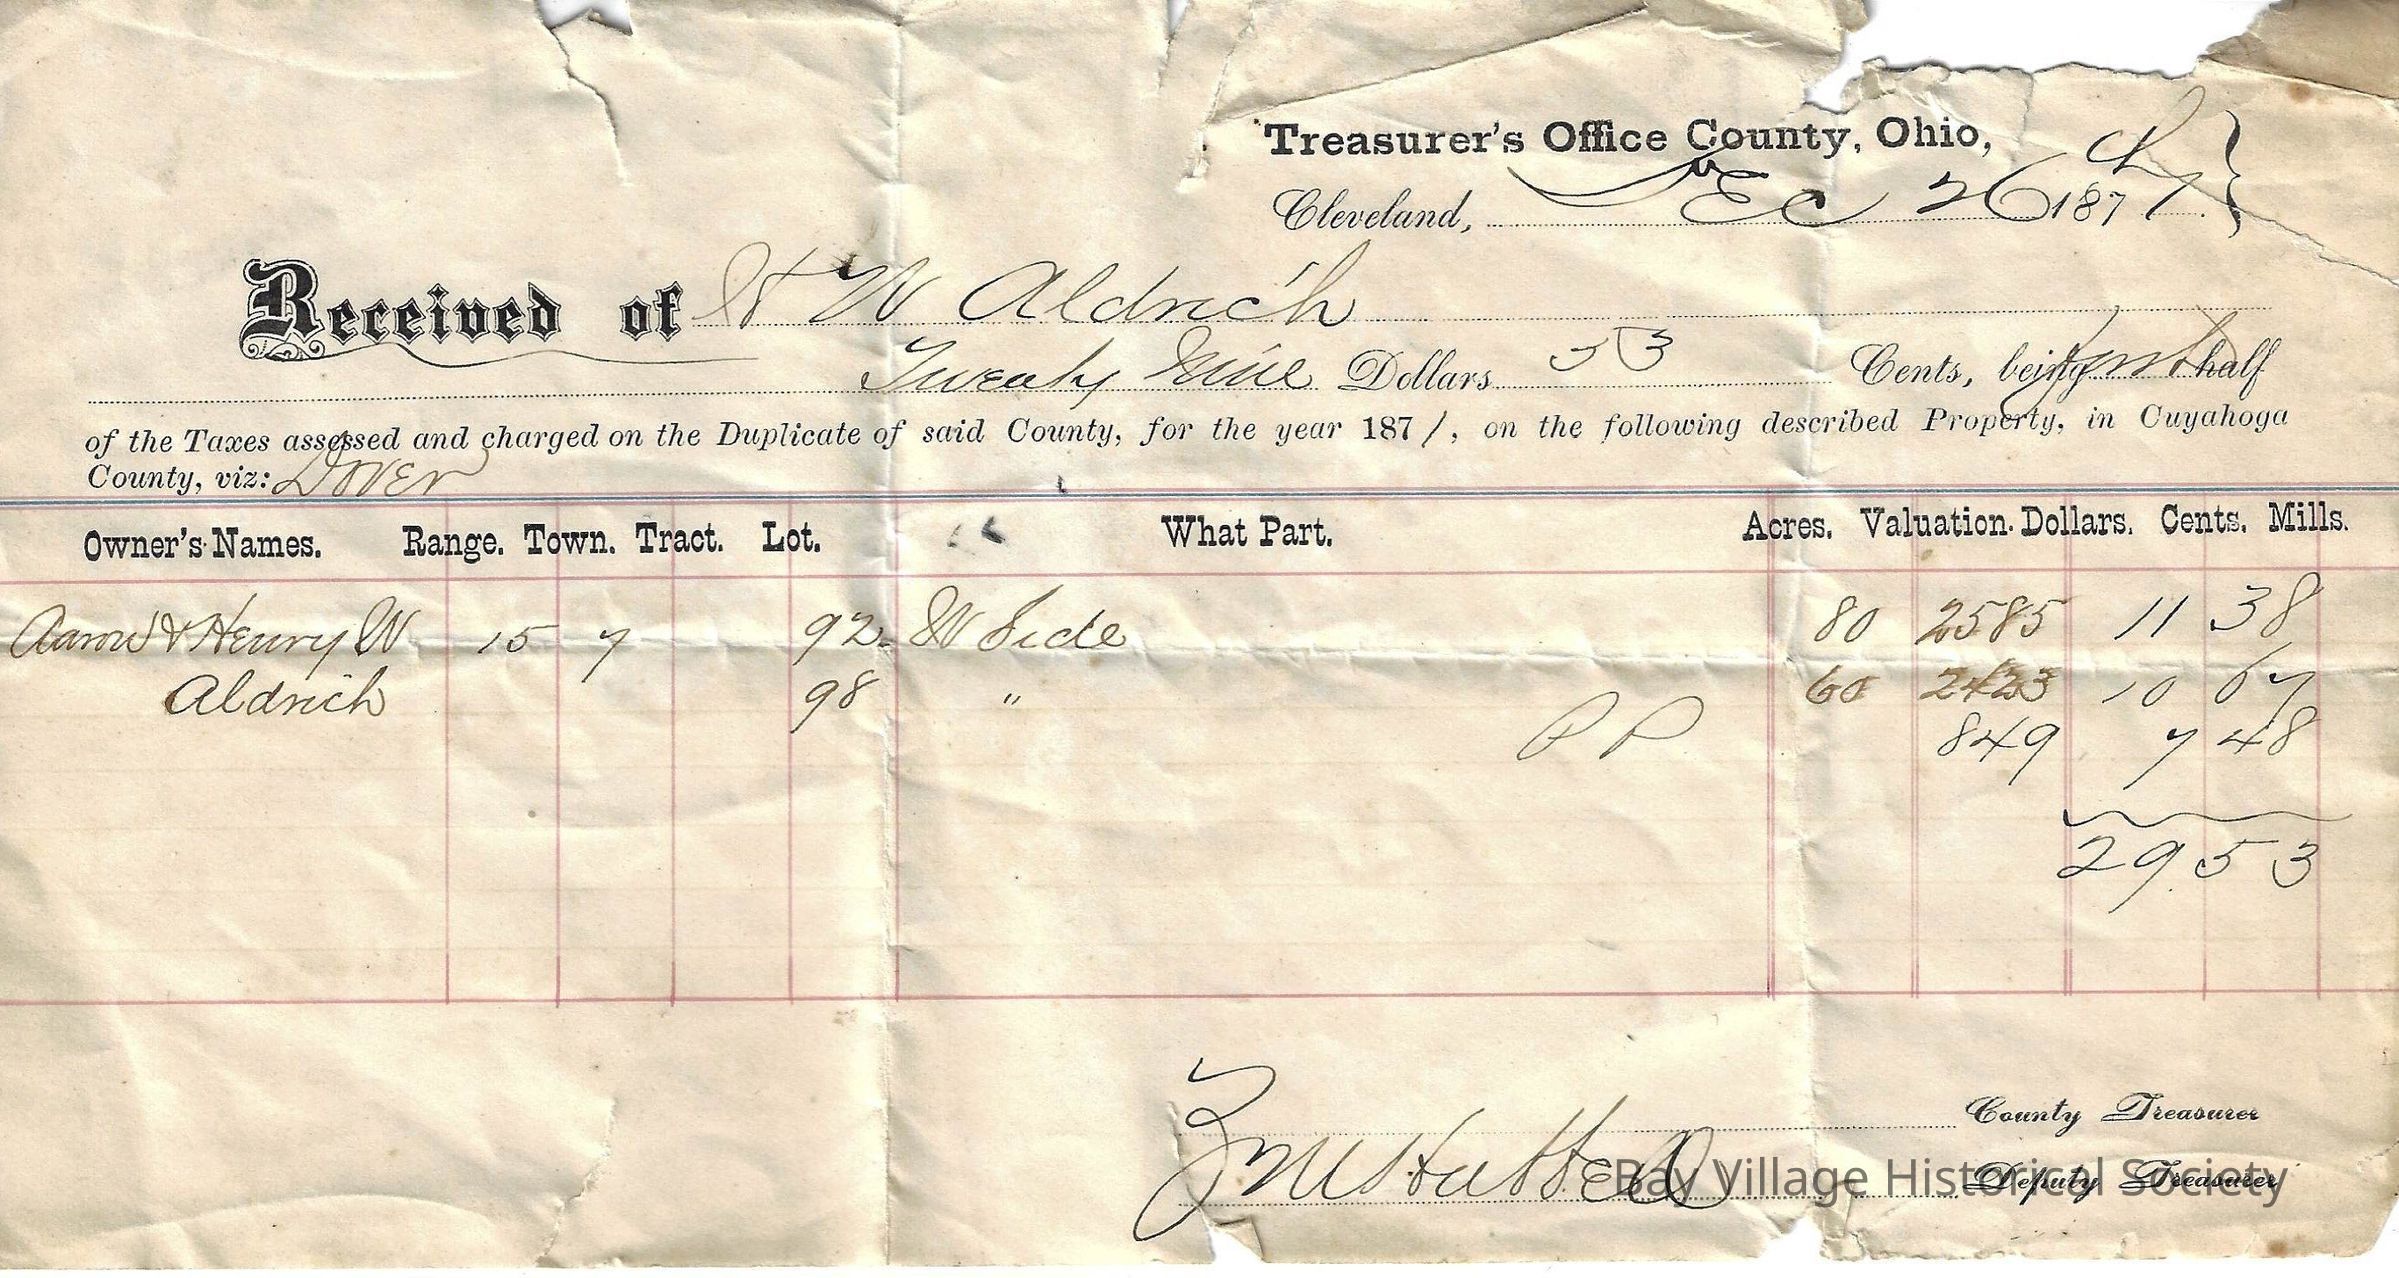 Treasurer's Office County, Ohio,
Cleveland, Dec 26 1871.
Received of H W Aldrich
Twenty Nine Dollars 53 Cents, being first half
of the Taxes assessed and charged on the Duplicate of said County, for the year 1871, on the following described Property, in Cuyahoga
County, viz: Dover
Owner's Names. Range. Town. Tract. Lot. What Part. Acres. Valuation. Dollars. Cents. Mills.
Aaron & Henry W 15 7 92 W Side 80 2585 11 38
Aldrich 98 " 60 2423 10 67
PP 849 7 48
29 53
County Treasurer
Deputy Treasurer
Bay Village Historical Society